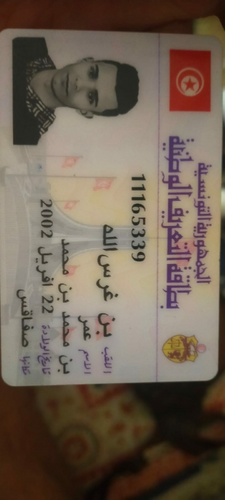 الجمهورية التونسية
بطاقة التعريف الوطنية
11165339
اللقب بن غرس الله
الاسم عمر
بن محمد بن محمد
تاريخ الولادة 22 افريل 2002
مكانها صفاقس